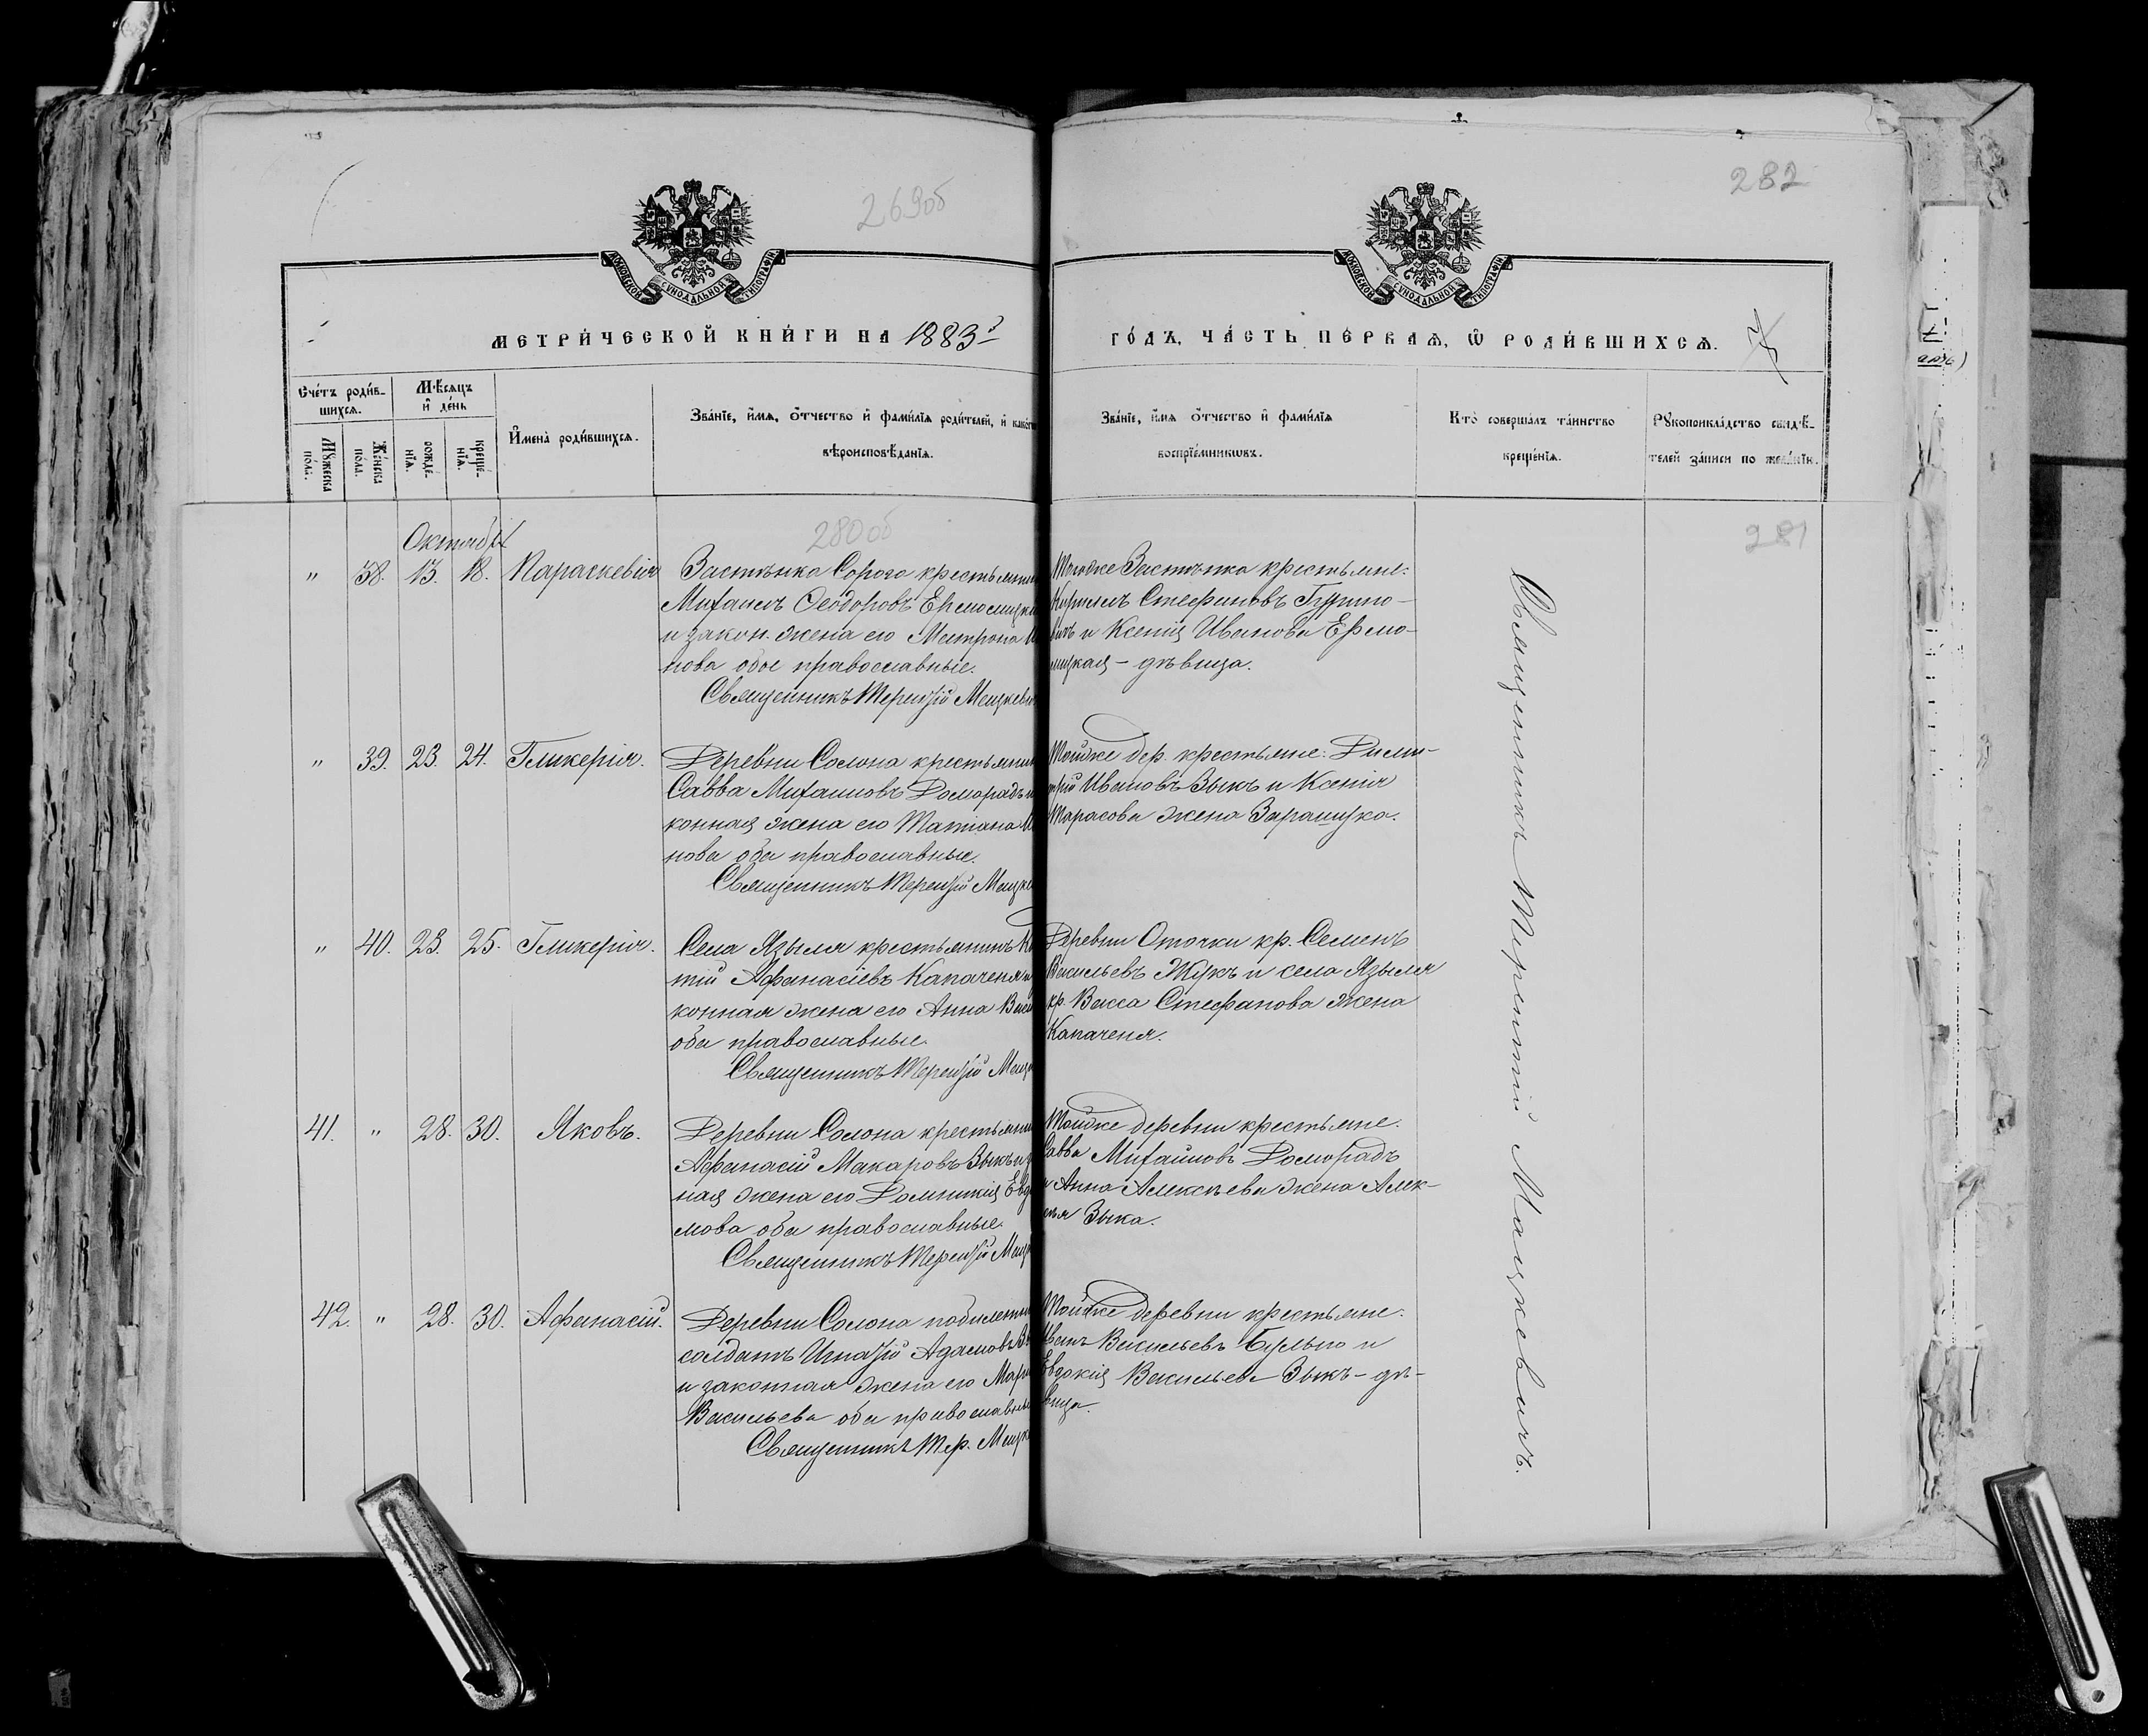 269об
282
МОСКОВСКОЙ СѴНОДАЛЬНОЙ ТИПОГРАФІИ
МОСКОВСКОЙ СѴНОДАЛЬНОЙ ТИПОГРАФІИ
МЕТРИ́ЧЕСКОЙ КНИ́ГИ НА 1883й
ГО́ДЪ, ЧА́СТЬ ПЕ́РВАѦ, Ѿ РОДИ́ВШИХСѦ.
Сче́тъ роди́в-
шихсѧ.
Мѣ́сѧцъ
и де́нь
Мꙋ́жеска по́лꙋ.
Же́нска по́ла.
рожде́-
нїѧ.
креще́-
нїѧ.
Имена̀ роди́вшихсѧ.
Зва́нїе, и́мѧ, о́тчество и фами́лїѧ роди́телей, и како́гѡ
вѣроисповѣ́данїѧ.
Зва́нїе, и́мѧ о́тчество и фами́лїѧ
воспрїе́мникѡвъ.
Кто̀ соверша́лъ та́инство
креще́нїѧ.
Рꙋкоприкла́дство свидѣ́-
телей за́писи по жела́нїю.
280об
281
Октябрь
" 38. 13. 18. Параскевія
Застѣнка Сорого крестьянин
Михаилъ Ѳеодоровъ Ермолицкі
и закон. жена его Матрона
нова обое православные.
Священникъ Терентій Мацкевич
Тогоже Застѣнка крестьяне:
Корнилъ Стефановъ Гурино-
вичъ и Ксенія Иванова Ермо-
лицкая – дѣвица.
" 39. 23. 24. Гликерія.
Деревни Солона крестьянин
Савва Михаиловъ Доморадъ и
конная жена его Татіана
нова оба православные.
Священникъ Терентій Мацке
Тойже дер. крестьяне: Дими-
трій Ивановъ Зыкъ и Ксенія
Тарасова жена Зарацука.
" 40. 23. 25. Гликерія.
Села Языля крестьянинъ
тій Афанасіевъ Капаченя и
конная жена его Анна Васи
оба православные.
Священникъ Терентій Мацк
Деревни Оточки кр. Семенъ
Васильевъ Жукъ и села Языля
кр. Васса Стефанова жена
Капаченя.
41. " 28. 30. Яковъ.
Деревни Солона крестьянин
Афанасій Макаровъ Зыкъ и з
ная жена его Домникія Евд
мова оба православные.
Священникъ Терентій Мацк
Тойже деревни крестьяне.
Савва Михайловъ Доморадъ
и Анна Алексѣева жена Алек-
сѣя Зыка.
42. " 28. 30. Афанасій.
Деревни Солона побилетн
солдатъ Игнатій Адамовъ
и законная жена его Мари
Васильева оба православны
Священникъ Тер. Мацк
Тойже деревни крестьяне:
Иванъ Васильевъ Булыно и
Евдокія Васильева Зыкъ – дѣ-
вица.
Священникъ Терентій Мацкевичъ.